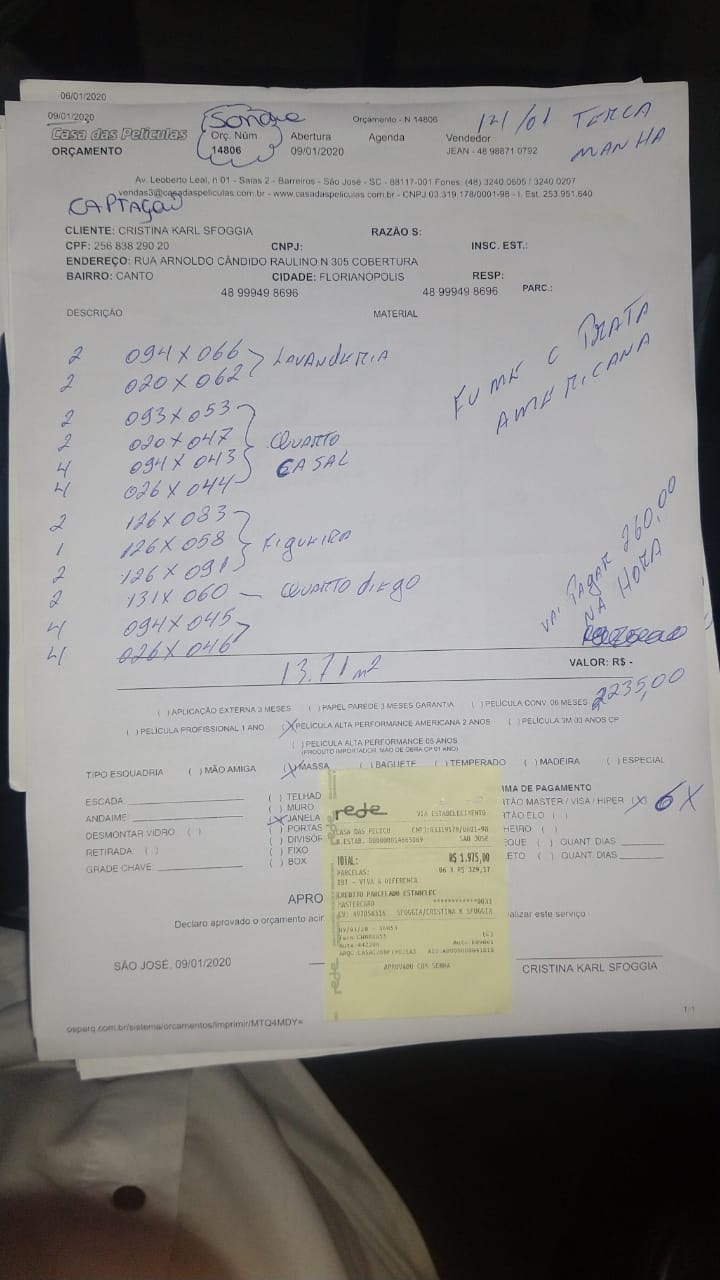 06/01/2020
09/01/2020
Orçamento - N 14806
14/01 TERCA
MANHA
Casa das Películas
ORÇAMENTO
Orç. Núm
14806
Abertura
09/01/2020
Agenda
Vendedor
JEAN - 48 98871 0792
Av. Leoberto Leal, n 01 - Salas 2 - Barreiros - São José - SC - 88117-001 Fones: (48) 3240.0605 / 3240.0207
vendas3@casadaspeliculas.com.br - www.casadaspeliculas.com.br - CNPJ 03.319.178/0001-98 - I. Est. 253.951.640
CAPTAÇAO
CLIENTE: CRISTINA KARL SFOGGIA
RAZÃO S:
CPF: 256 838 290 20
CNPJ:
INSC. EST.:
ENDEREÇO: RUA ARNOLDO CÂNDIDO RAULINO N 305 COBERTURA
BAIRRO: CANTO
CIDADE: FLORIANÓPOLIS
RESP:
48 99949 8696
48 99949 8696
PARC.:
DESCRIÇÃO
MATERIAL
2 094 X 066
LAVANDERIA
2 020 X 062
FUME C PRATA
AMERICANA
2 093 X 053
2 020 X 047
QUARTO
4 094 X 043
CASAL
4 026 X 044
2 126 X 083
1 126 X 058
FIGUEIRA
2 126 X 091
2 131 X 060 - QUARTO DIEGO
4 094 X 045
4 026 X 046
VAI PAGAR 260,00
NA HORA
13.71 m2
VALOR: R$ -
2235,00
( ) APLICAÇÃO EXTERNA 3 MESES ( ) PAPEL PAREDE 3 MESES GARANTIA ( ) PELÍCULA CONV. 06 MESES
( ) PELÍCULA PROFISSIONAL 1 ANO (X) PELÍCULA ALTA PERFORMANCE AMERICANA 2 ANOS ( ) PELÍCULA 3M 03 ANOS CP
( ) PELÍCULA ALTA PERFORMANCE 05 ANOS
(PRODUTO IMPORTADOR: MÃO DE OBRA CP 01 ANO)
TIPO ESQUADRIA ( ) MÃO AMIGA (X) MASSA ( ) BAGUETE ( ) TEMPERADO ( ) MADEIRA ( ) ESPECIAL
ESCADA:
ANDAIME:
DESMONTAR VIDRO ( )
RETIRADA: ( )
GRADE CHAVE:
( ) TELHAD
( ) MURO
(X) JANELA
( ) PORTAS
( ) DIVISÓR
( ) FIXO
( ) BOX
MA DE PAGAMENTO
TÃO MASTER / VISA / HIPER (X) 6X
RTÃO ELO ( )
HEIRO ( )
QUE ( ) QUANT. DIAS
ETO ( ) QUANT. DIAS
rede
VIA ESTABELECIMENTO
TOTAL: R$ 1.975,00
PARCELAS: 06 X R$ 329,17
CREDITO PARCELADO ESTABELEC
MASTERCARD
SFOGGIA/CRISTINA K SFOGGIA
APROVADO COM SENHA
APRO
Declaro aprovado o orçamento acir
alizar este serviço
SÃO JOSÉ, 09/01/2020
CRISTINA KARL SFOGGIA
osparq.com.br/sistema/orcamentos/imprimir/MTQ4MDY=
1/1